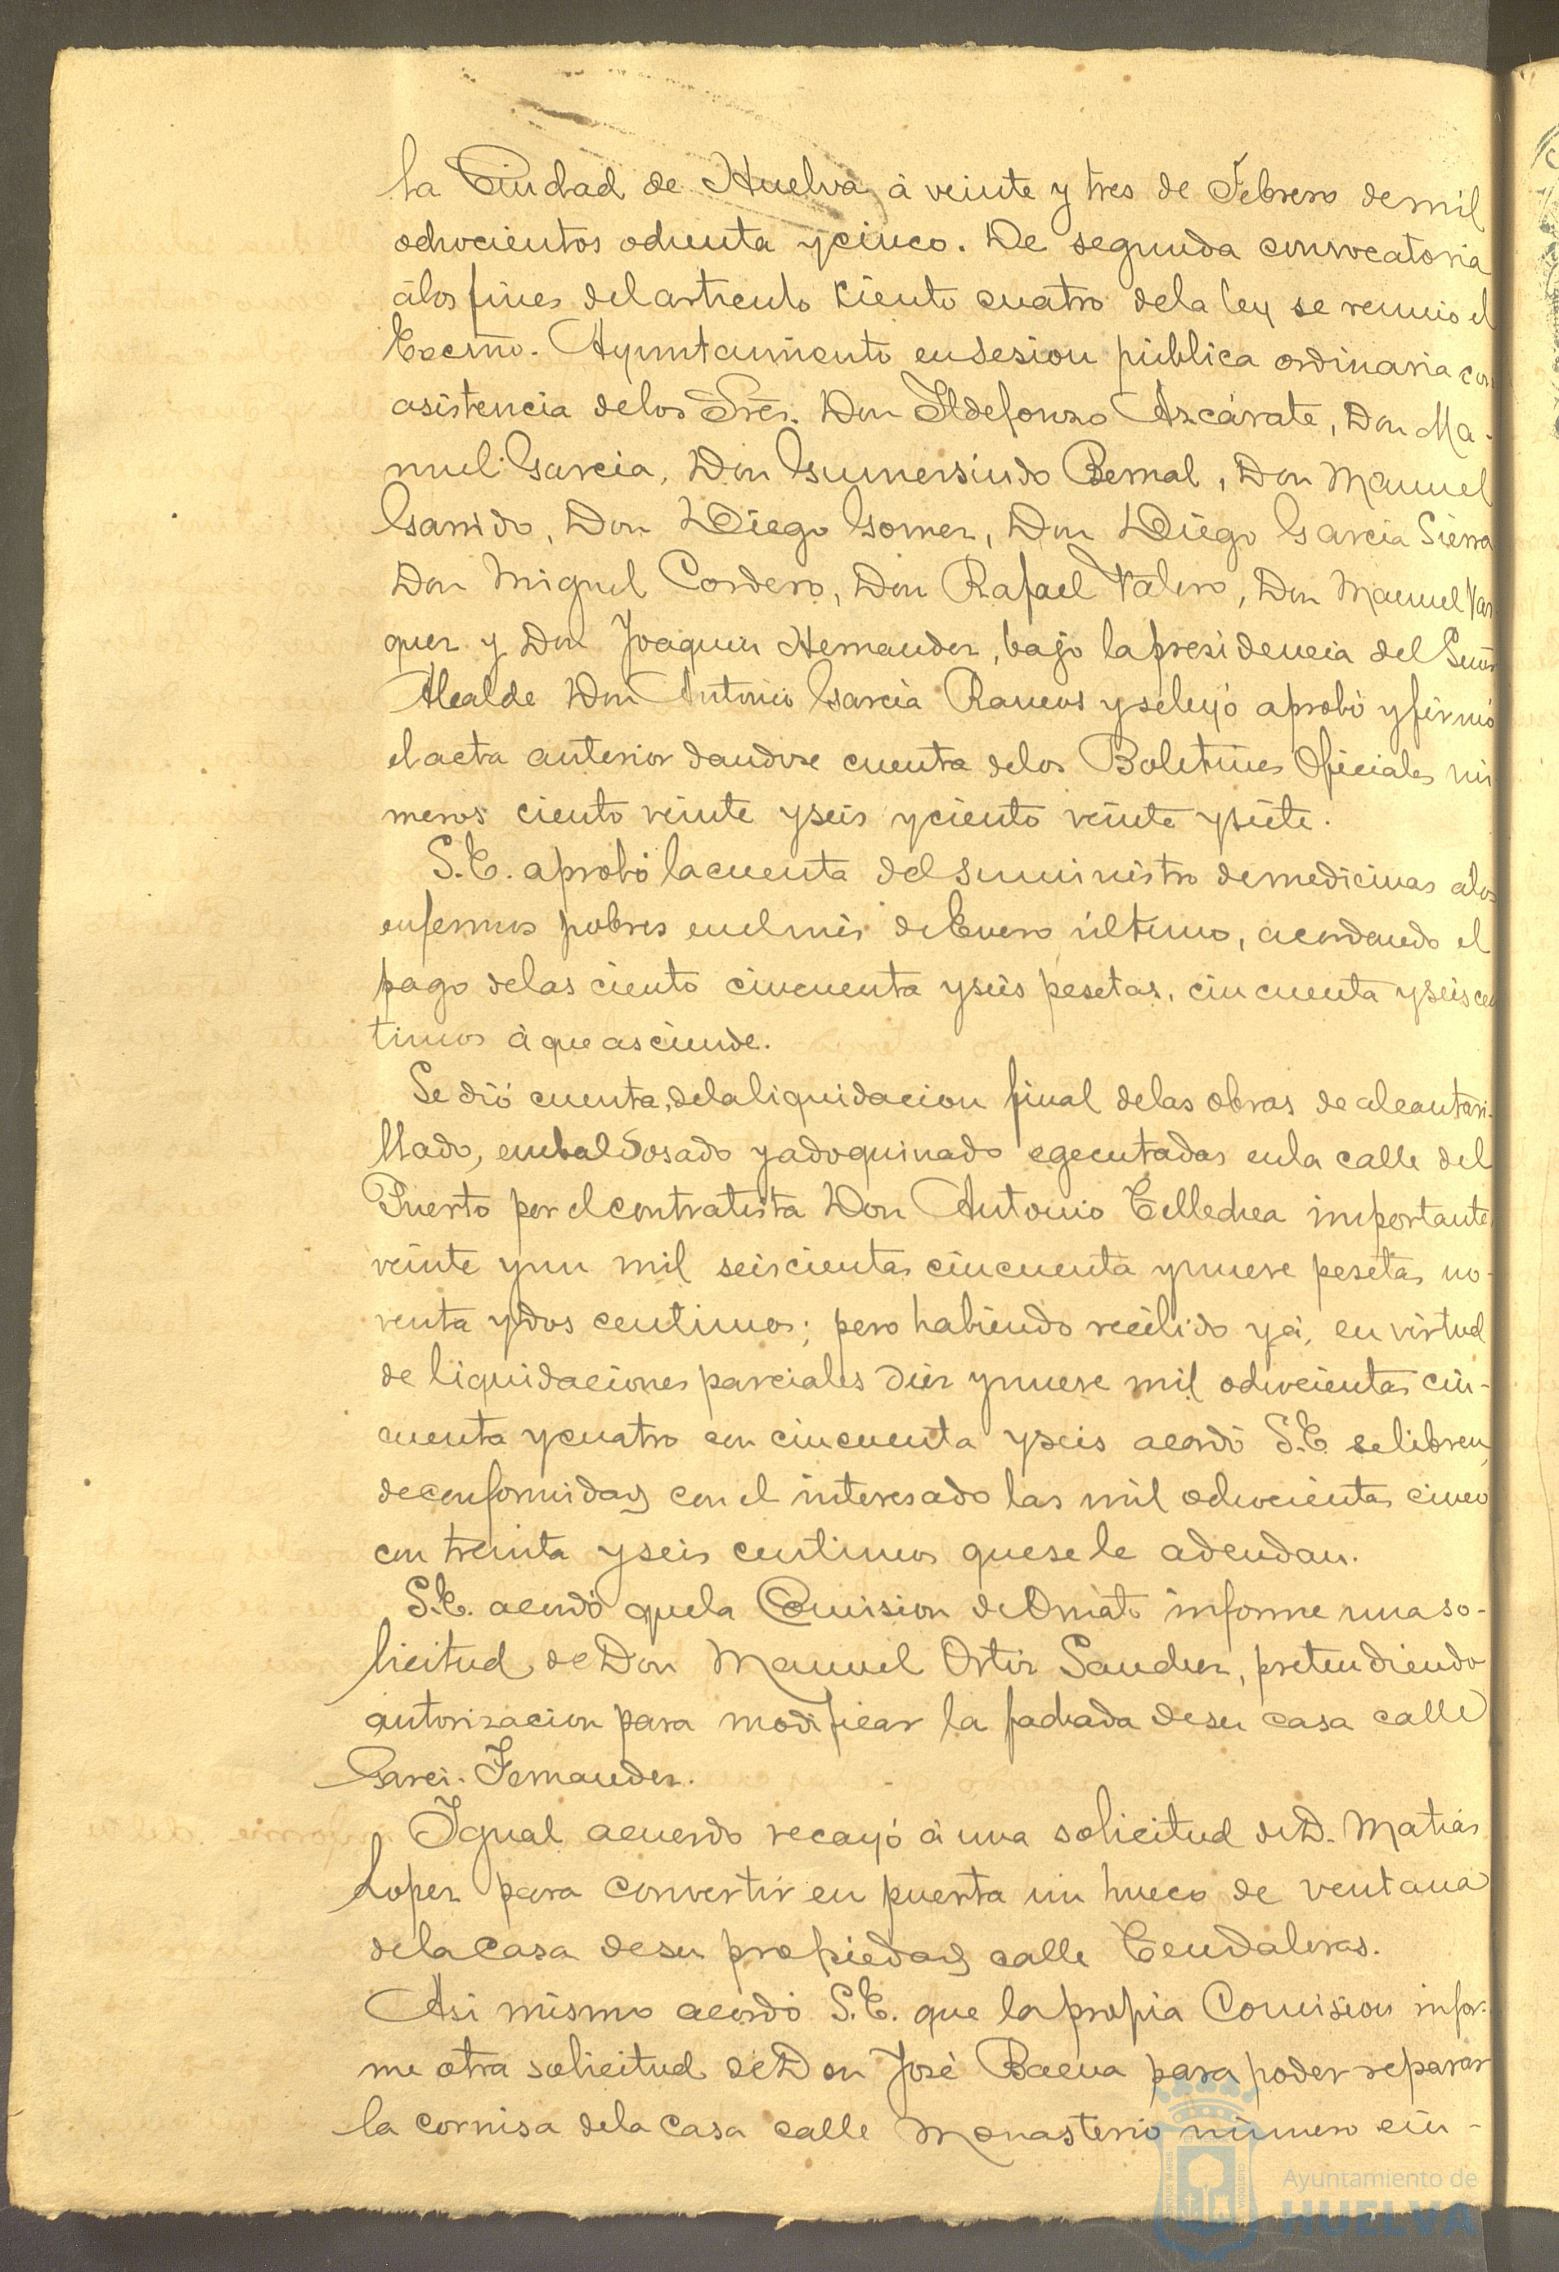 la Ciudad de Huelva, à veinte y tres de Febrero de mil
ochocientos ochenta y cinco. De segunda convocatoria
à los fines del articulo ciento cuatro de la ley se reunió el
Excmo. Ayuntamiento en sesion pública ordinaria con
asistencia de los Sres. Don Ildefonso Azcárate, Don Ma-
nuel Garcia, Don Gumersindo Bernal, Don Manuel
Garrido, Don Diego Gomez, Don Diego Garcia Sierra
Don Miguel Cordero, Don Rafael Valero, Don Manuel Vaz
quez y Don Joaquin Hernandez, bajo la presidencia del Señor
Alcalde Don Antonio Garcia Ramos y se leyó aprobó y firmó
el acta anterior dandose cuenta de los Boletines Oficiales nú
meros ciento veinte y seis y ciento veinte y siete.
S.E. aprobó la cuenta del suministro de medicinas a los
enfermos pobres en el mes de Enero último, acordando el
pago de las ciento cincuenta y seis pesetas, cincuenta y seis cen
timos à que asciende.
Se dió cuenta de la liquidacion final de las obras de alcantari-
llado, embaldosado y adoquinado egecutadas en la calle del
Puerto por el contratista Don Antonio Tellechea importante
veinte y un mil seiscientas cincuenta y nueve pesetas no-
venta y dos centimos; pero habiendo recibido yá, en virtud
de liquidaciones parciales diez y nueve mil ochocientas cin-
cuenta y cuatro con cincuenta y seis acordó S.E. se libren,
de conformidad con el interesado las mil ochocientas cinco
con treinta y seis centimos que se le adeudan.
S.E. acordó que la Comision de Ornato informe una so-
licitud de Don Manuel Ortiz Sanchez, pretendiendo
autorizacion para modificar la fachada de su casa calle
Garci-Fernandez.
Igual acuerdo recayó à una solicitud de D. Matias
Lopez para convertir en puerta un hueco de ventana
de la casa de su propiedad calle Tendaleras.
Asi mismo acordó S.E. que la propia Comision infor-
me otra solicitud de Don José Baena para poder reparar
la cornisa de la casa calle Monasterio número cin-
Ayuntamiento de
HUELVA